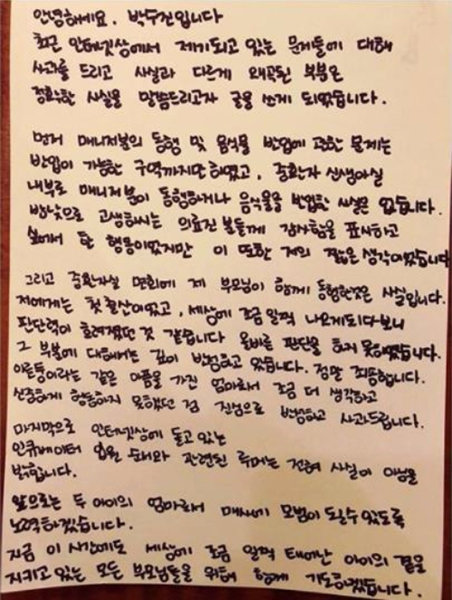 안녕하세요. 박수진입니다
최근 인터넷상에서 제기되고 있는 문제들에 대해
사과를 드리고 사실과 다르게 왜곡된 부분은
정확한 사실을 말씀드리고자 글을 쓰게 되었습니다.
먼저 매니저분의 동행 및 음식물 반입에 관한 문제는
반입이 가능한 구역까지만 하였고, 중환자 신생아실
내부로 매니저분이 동행하거나 음식물을 반입한 사실은 없습니다.
밤낮으로 고생하시는 의료진 분들께 감사함을 표시하고
싶어서 한 행동이었지만 이 또한 저의 짧은 생각이었습니다
그리고 중환자실 면회에 제 부모님이 함께 동행한것은 사실입니다.
저에게는 첫 출산이었고, 세상에 조금 일찍 나오게되다보니
판단력이 흐려졌던 것 같습니다 올바른 판단을 하지 못하였습니다.
그 부분에 대해서는 깊이 반성하고 있습니다. 정말 죄송합니다.
이른둥이라는 같은 아픔을 가진 엄마로서 조금 더 생각하고
신중하게 행동하지 못했던 점 진심으로 반성하고 사과드립니다.
마지막으로 인터넷상에 돌고있는
인큐베이터 입원 순서와 관련된 루머는 전혀 사실이 아님을
밝힙니다.
앞으로는 두 아이의 엄마로서 매사에 모범이 될수있도록
노력하겠습니다.
지금 이 시간에도 세상에 조금 일찍 태어난 아이의 곁을
지키고 있는 모든 부모님들을 위해 함께 기도하겠습니다.